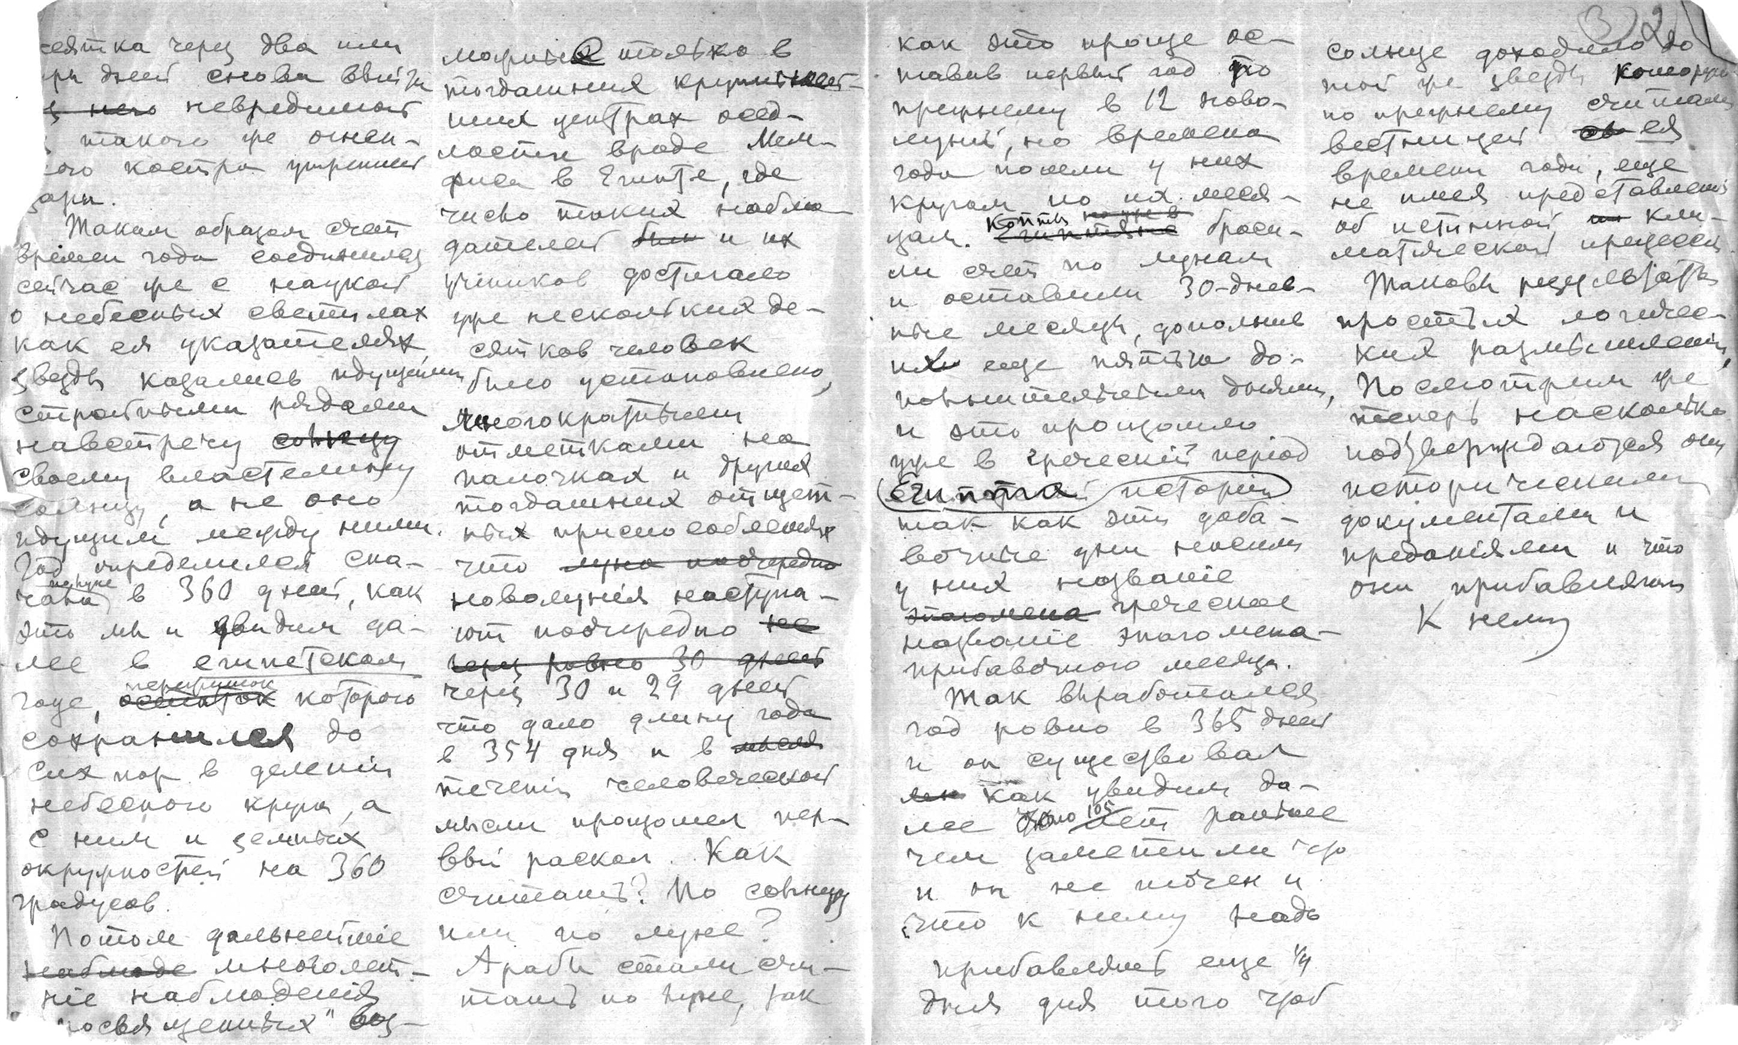 сятка через два или
три дней снова выйти
з него невредимой
такого же огнен-
ого костра утренней
зари.
Таким образом счет
времен года соединился
сейчас же с наукой
о небесных светилах
как ея указателях,
звезды казались идущими
стройными рядами
навстречу солнцу
своему властелину
солнцу, а не оно
идущим между ними.
Год определился сна-
чала в 360 дней, как
это мы и увидим да-
лее в египетском
годе, остаток пережиток которого
сохранился до
сих пор в деленіи
небесного круга, а
с ним и земных
окружностей на 360
градусов.
Потом дальнейшіе
наблюде многолет-
ніе наблюденія
"посвященных" воз-
можные только в
тогдашних крупней-
ших центрах осед-
лости вроде Мем-
фиса в Египте, где
число таких наблю-
дателей был и их
учеников достигало
уже нескольких де-
сятков человек
было установлено,
многократными
отметками на
палочках и других
тогдашних отщет-
ных приспособленіях
что луна поочередно
новолунія наступа-
ют поочередно не
через ровно 30 дней
через 30 и 29 дней
что дало длину года
в 354 дня и в мысля
теченіи человеческой
мысли произошел пер-
вый раскол. Как
считать? По солнцу
или по луне?
Арабы стали счи-
тать по луне, так
как это проще ос-
тавив первый год по
прежнему в 12 ново-
луній, но времена
года пошли у них
кругом по их меся-
цам. Египтяне Копты но уже в броси-
ли счет по лунам
и оставили 30-днев-
ные месяцы, дополнив
их еще пятью до-
полнительными днями,
и это произошло
уже в греческій період
Египта исторіи
так как эти доба-
вочные дни носили
у них названіе
эпагомена греческое
названіе эпагомена-
прибавочного месяца.
Так выработался
год ровно в 365 дней
и он существовал
как увидим да-
лее лет раньше
чем заметили что
и он не точен и
что к нему надо
прибавлять еще 1/4
дня для того чтоб
3 2
солнце доходило до
той же звезды которую
по прежнему считали
вестницей ея
времени года, еще
не имея представленія
об истинной кли-
матической прецессіи.
Таковы результаты
простых логичес-
ких размышленій,
Посмотрим же
теперь насколько
подтверждаются они
историческими
документами и
преданіями и что
они прибавляют
к нему